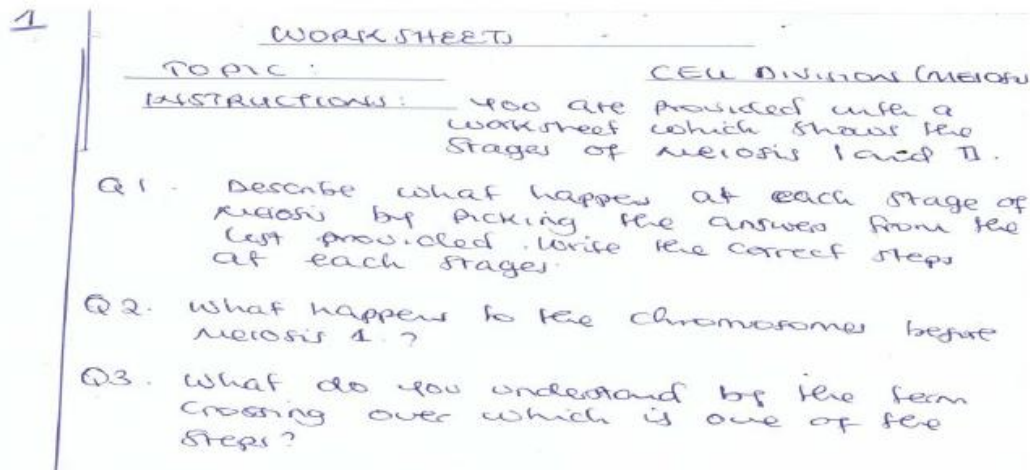 1
WORKSHEETS
TOPIC : CELL DIVISION (MEIOSIS
INSTRUCTIONS : You are provided with a
worksheet which shows the
stages of meiosis I and II.
Q1. Describe what happens at each stage of
meiosis by picking the answers from the
list provided. Write the correct steps
at each stages.
Q2. What happens to the chromosomes before
meiosis 1.?
Q3. What do you understand by the term
crossing over which is one of the
steps?